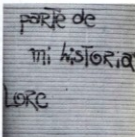 parte de
mi hiSTORIA
LORE